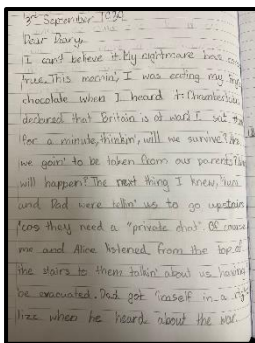 3rd September 1939
Dear Diary,
I can't believe it. My nightmare has come
true. This mornin', I was eating my
chocolate when I heard it: Chamberlain
declared that Britain is at war! I sat
for a minute, thinkin', will we survive? Are
we goin' to be taken from our parents?
will happen? The next thing I knew, Mum
and Dad were tellin' us to go upstairs
'cos they need a "private chat". Of course
me and Alice listened from the top of
the stairs to them talkin' about us having
be evacuated. Dad got in a
when he heard about the war.